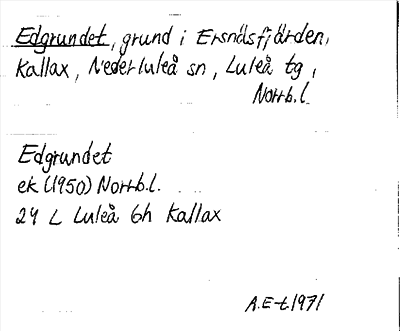 Edgrundet, grund i Ersnäsfjärden,
Kallax, Nederluleå sn, Luleå tg,
Norrb.l.
Edgrundet
ek (1950) Norrb.l.
24 L Luleå 6h Kallax
A.E-t.1971